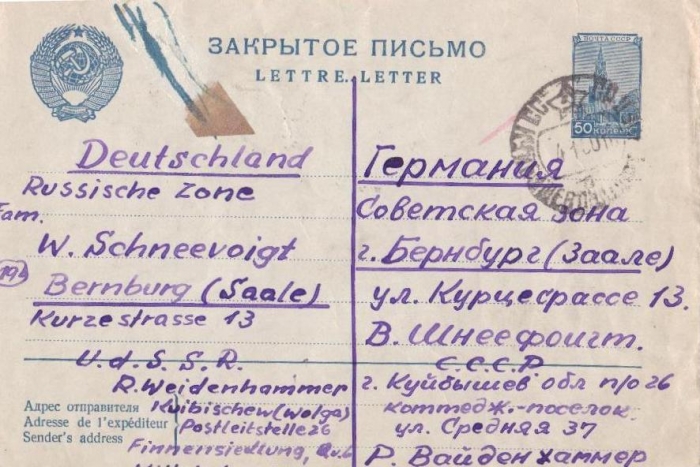 ЗАКРЫТОЕ ПИСЬМО
LETTRE. LETTER
ПОЧТА СССР
50 КОПЕЕК
Deutschland
Russische Zone
Fam.
W. Schneevoigt
194
Bernburg (Saale)
Kurzestrasse 13
U.d.S.S.R.
R. Weidenhammer
Kuibischew (Wolga)
Postleitstelle 26
Finnensiedlung,
Адрес отправителя
Adresse de l'expéditeur
Sender's address
Германия
Советская зона
г. Бернбург (Заале)
ул. Курцесрассе 13.
В. Шнеефоигт.
С.С.С.Р
г. Куйбышев обл п/о 26
коттедж.-поселок.
ул. Средняя 37
Р. Вайденхаммер